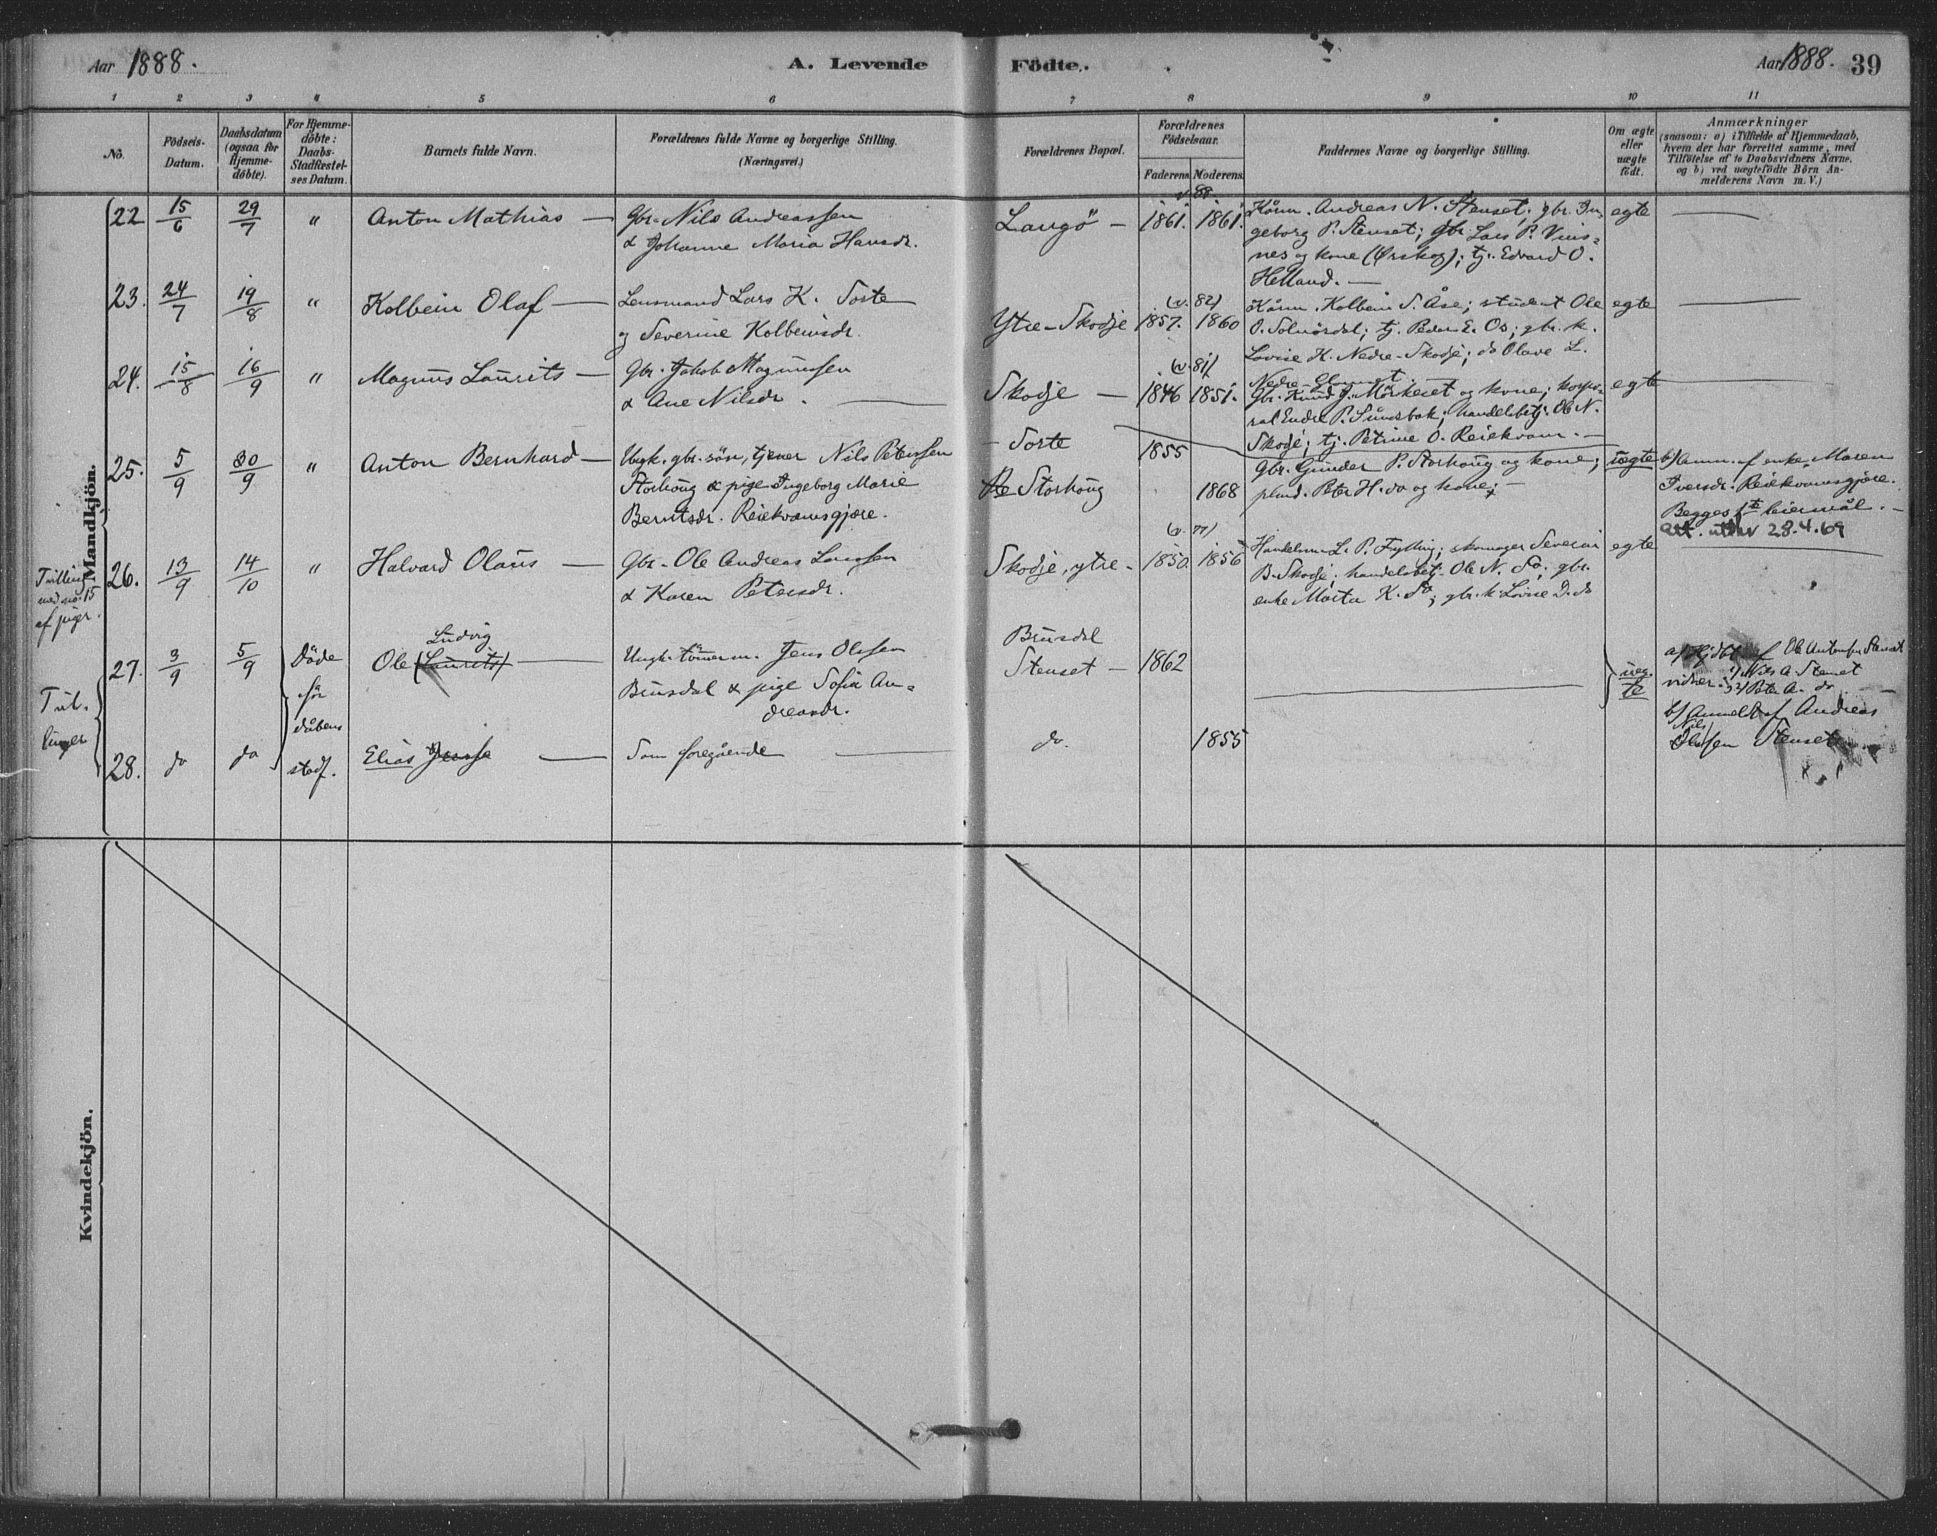 Aar 1888.
A. Levende Födte.
Aar 1888. 39
1 2 3 4 5 6 7 8 9 10 11
No.
Födsels-
Datum.
Daabsdatum
(ogsaa for
Hjemme-
döbte).
For Hjemme-
döbte:
Daabs-
Stadfæstel-
ses Datum.
Barnets fulde Navn.
Forældrenes fulde Navne og borgerlige Stilling.
(Næringsvei.)
Forældrenes Bopæl.
Forældrenes
Födselsaar.
Faderens. Moderens.
Faddernes Navne og borgerlige Stilling.
Om ægte
eller
uægte
födt.
Anmærkninger
(saasom: a) i Tilfælde af Hjemmedaab,
hvem der har forrettet samme, med
Tilföielse af to Daabsvidners Navne,
og b) ved uægtefödte Börn An-
melderens Navn m. V.)
Mandkjön.
22 15/6 29/7 " Anton Mathias —
Gbr. Nils Andreassen
& Johanne Maria Hansdr.
Langö —
v. 88
1861. 1861.
Kårm. Andreas N. Stenset; gbr. In-
geborg P. Stenset; gbr. Lars P. Vins-
nes og kone (Ørskog); tj. Edvard O.
Helland. —
egte
23. 24/7 19/8 " Kolbein Olaf —
Lensmand Lars K. Sorte
og Severine Kolbeinsdr.
Ytre-Skodje
(v. 82)
1857. 1860
Kårm. Kolbein S. Åse; student Ole
O. Solnördal; tj. Peder E. Os; gbr. k.
Lovise K. Nedre-Skodje; do Olave L.
Nedre-Glomset.
egte
24. 15/8 16/9 " Magnus Laurits —
Gbr. Jakob Magnussen
& Ane Nilsdr.
Skodje —
(v. 81)
1846 1851.
Gbr. Knud J. Mørkeset og kone; korpo-
ral Endre P. Sundsbak; handelsbetj. Ole N.
Skodje; tj. Petrine O. Reiekvam. —
egte
25. 5/9 30/9 " Anton Bernhard —
Ungk. gbr. sön, tjener Nils Peterssen
Storhoug & pige Ingeborg Marie
Berntsdr. Reiekvamsgjære.
- Sorte
Storhoug
1855
1868
Gbr. Gunder P. Storhoug og kone;
Peter H. do og kone; —
uegte
b) Anm. af enke Maren
Iversdr. Reiekvamsgjære.
Begges 1ste leiermål. —
Att. utskr 28.4.69
Tvilling
med no. 15
af piger.
26. 13/9 14/10 " Halvard Olaus —
Gbr. Ole Andreas Larssen
& Karen Petersdr.
Skodje, ytre —
(v. 77)
1850. 1856
Handelsm. L. P. Fylling; skomager Severin
B. Skodje; handelsbetj. Ole N. So; gbr.
enke Marta K. So; gbr. k. Lovise D. do
egte
Tvil-
linger
27. 3/9 5/9
Döde
för
dåbens
stadf.
Ludvig
Ole (Laurits) —
Ungk. tömerm. Jens Olssen
Brusdal & pige Sofie An-
dreasdr.
Brusdal
Stenset —
1862
ueg-
te
a) Hjdbt af Ole Antonsen Stenset
vidner: 1) Nils A. Stenset
2) Peter A. do
b) Anmeldt af Andreas
Nils
Olssen Stenset
28. do do Elias Jensse —
Som foregående
do. 1855
Kvindekjön.